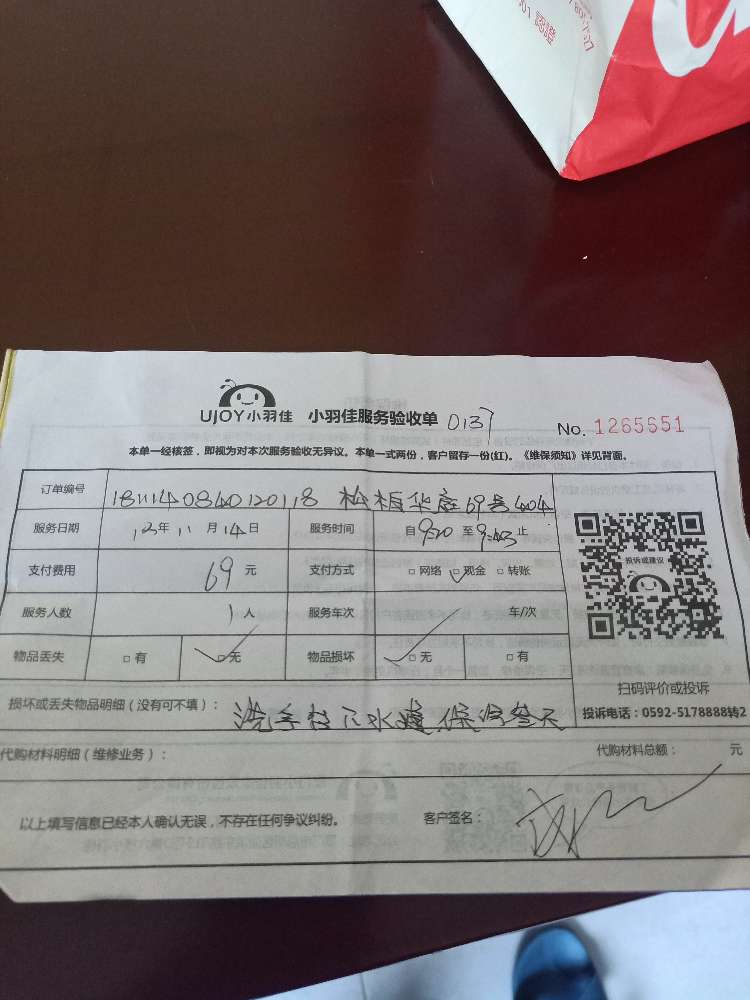 01 認證
UJOY小羽佳 小羽佳服务验收单 0137 No. 1265651
本单一经核签，即视为对本次服务验收无异议。本单一式两份，客户留存一份(红)。《维保须知》详见背面。
订单编号 1811140840120118 松柏华庭69号404
服务日期 年11月14日 服务时间 自9:20至9:43止
支付费用 69元 支付方式 □网络 □现金 □转账
服务人数 1人 服务车次 车/次
物品丢失 □有 □无 物品损坏 □无 □有
投诉或建议
扫码评价或投诉
损坏或丢失物品明细（没有可不填）： 洗手 下水 保 天
投诉电话：0592-5178888转2
代购材料明细（维修业务）： 代购材料总额： 元
以上填写信息已经本人确认无误，不存在任何争议纠纷。 客户签名：